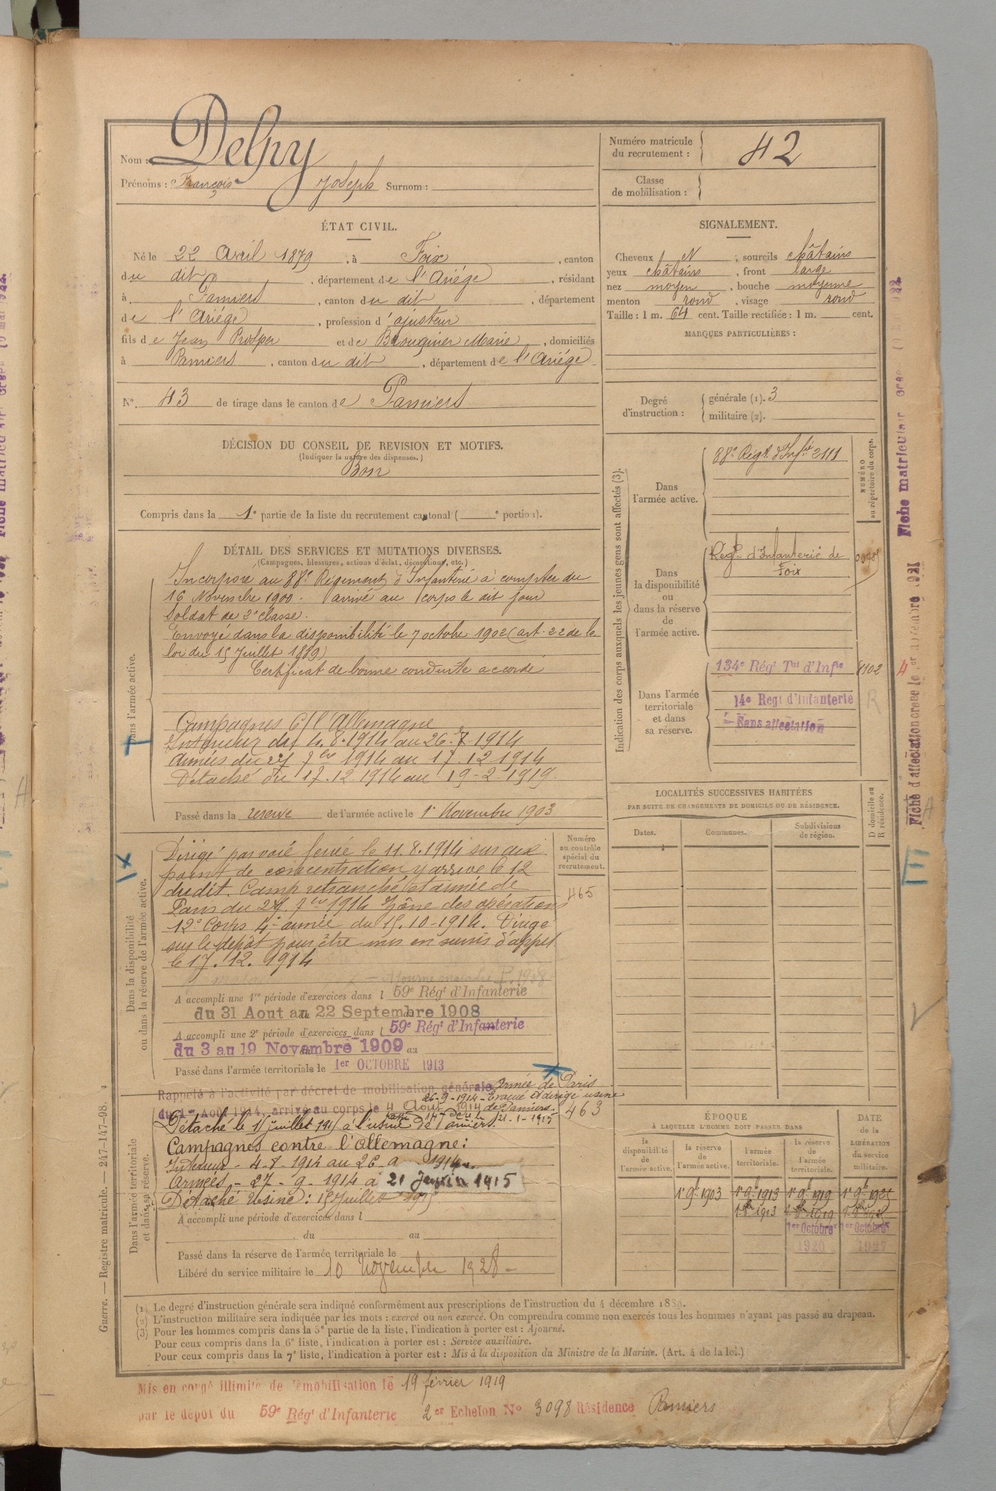 Nom : Delpy
Prénoms : François Joseph Surnom :
Numéro matricule du recrutement : 42
Classe de mobilisation :
ÉTAT CIVIL.
Né le 22 Avril 1879, à Foix, canton
du dit, département de l'Ariége, résidant
à Pamiers, canton du dit, département
de l'Ariége, profession d'ajusteur
fils de Jean Prosper et de Marie, domiciliés
à Pamiers, canton du dit, département de l'Ariége
N° 43 de tirage dans le canton de Pamiers
SIGNALEMENT.
Cheveux N, sourcils châtains
yeux châtains, front large
nez moyen, bouche moyenne
menton rond, visage rond
Taille : 1 m. 64 cent. Taille rectifiée : 1 m. cent.
MARQUES PARTICULIÈRES :
Degré d'instruction : générale (1). 3
militaire (2).
DÉCISION DU CONSEIL DE REVISION ET MOTIFS.
(Indiquer la nature des dispenses.)
Bon
Compris dans la 1e partie de la liste du recrutement cantonal ( e portion).
DÉTAIL DES SERVICES ET MUTATIONS DIVERSES.
(Campagnes, blessures, actions d'éclat, décorations, etc.)
Dans l'armée active.
Incorporé au 88e Régiment d'Infanterie à compter du
16 Novembre 1900. Arrivé au corps le dit jour
Soldat de 2e classe.
Envoyé dans la disponibilité le 7 octobre 1902 (art. 22 de la
loi du 15 Juillet 1889)
Certificat de bonne conduite accordé
Campagnes c/ l'Allemagne
Intérieur du 4.8.1914 au 26. 1914
Armées du 27 1914 au 17.12 1914
Détaché du 17.12 1914 au 19-2 1919
Passé dans la réserve de l'armée active le 1er Novembre 1903
Dans la disponibilité ou dans la réserve de l'armée active.
Dirigé par voie ferrée le 11.8.1914 sur
point de concentration y arrive le 12
dudit. Camp retranché et armée de
Paris du 27 1914 Zône des opérations
12e Corps 4e armée du 15.10-1914. Dirigé
sur le dépôt pour être mis en sursis d'appel
le 17.12.1914
Numéro au contrôle spécial du recrutement.
465
A accompli une 1re période d'exercices dans l 59e Rég.t d'Infanterie
du 31 Aout au 22 Septembre 1908
A accompli une 2e période d'exercices dans l 59e Rég.t d'Infanterie
du 3 au 19 Novembre 1909
Passé dans l'armée territoriale le 1er OCTOBRE 1913
Dans l'armée territoriale et dans sa réserve.
Rappelé à l'activité par décret de mobilisation générale Armée de Paris
du 1er Août 1914, arrivé au corps le 4 Août 1914
26-9-1914 Evacué et dirigé usine
de Pamiers 21-1-1915
463
Détaché le 15 juillet 1915 à l'usine de Pamiers
Campagnes contre l'Allemagne :
Intérieur - 4-8-1914 au 26 1914
Armées - 27-9-1914 à 21 Janvier 1915
Détaché Usine : 15 Juillet 1915
A accompli une période d'exercices dans l
du au
Passé dans la réserve de l'armée territoriale le
Libéré du service militaire le 10 Novembre 1928
Indication des corps auxquels les jeunes gens sont affectés (3).
NUMÉRO au répertoire du corps.
Dans l'armée active.
88e Régt. d'Infie 2111
Dans la disponibilité ou dans la réserve de l'armée active.
Régt. d'Infanterie de Foix
Dans l'armée territoriale et dans sa réserve.
134e Régt Tal d'Infie 1102
14e Régt d'Infanterie
Sans affectation
LOCALITÉS SUCCESSIVES HABITÉES
PAR SUITE DE CHANGEMENTS DE DOMICILE OU DE RÉSIDENCE.
Dates. Communes. Subdivisions de région. D domicile ou R résidence.
ÉPOQUE À LAQUELLE L'HOMME DOIT PASSER DANS
la disponibilité de l'armée active. la réserve de l'armée active. l'armée territoriale. la réserve de l'armée territoriale.
DATE de la LIBÉRATION du service militaire.
1er 9bre 1903 1er 9bre 1913 1er 9bre 1919 1er 9bre 1925
1er Octobre 1er Octobre
Guerre. — Registre matricule. — 247-147-98.
(1) Le degré d'instruction générale sera indiqué conformément aux prescriptions de l'instruction du 4 décembre 1889.
(2) L'instruction militaire sera indiquée par les mots : exercé ou non exercé. On comprendra comme non exercés tous les hommes n'ayant pas passé au drapeau.
(3) Pour les hommes compris dans la 5e partie de la liste, l'indication à porter est : Ajourné.
Pour ceux compris dans la 6e liste, l'indication à porter est : Service auxiliaire.
Pour ceux compris dans la 7e liste, l'indication à porter est : Mis à la disposition du Ministre de la Marine. (Art. 4 de la loi.)
Mis en congé illimité de démobilisation le 19 février 1919
par le dépôt du 59e Régt d'Infanterie 2er Echelon No 3098 Résidence Pamiers